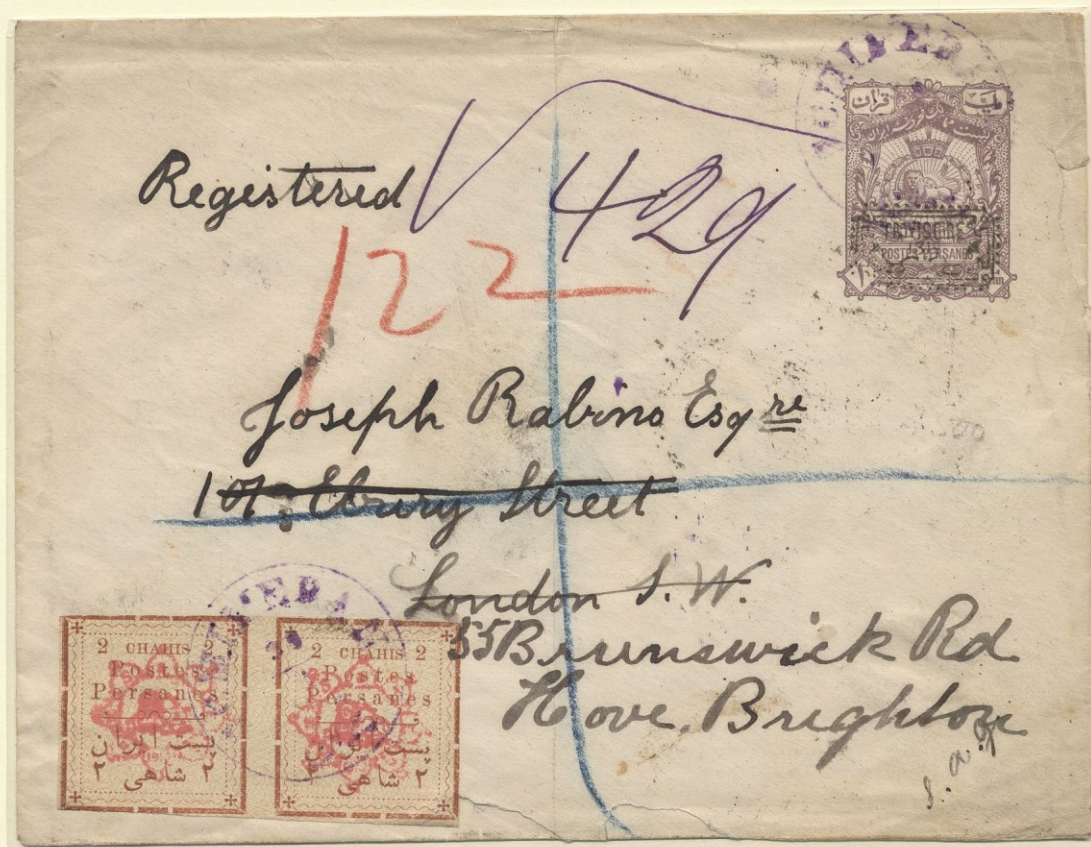 یک قران
PROVISOIRE
POSTES PERSANES
Registered
429
122
Joseph Rabino Esqre
107 Ebury Street
London S.W.
55 Brunswick Rd
Hove Brighton
2 CHAHIS 2
Postes
Persanes
پست ایران
۲ شاهی ۲
2 CHAHIS 2
Postes
Persanes
پست ایران
۲ شاهی ۲